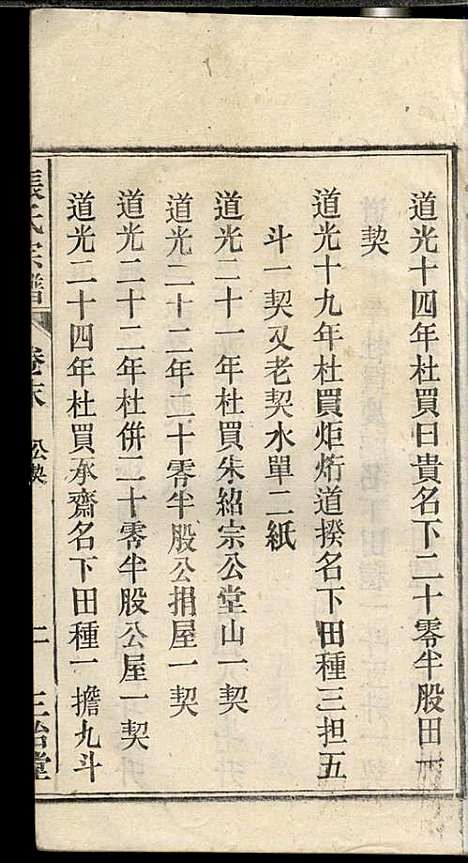 道光十四年杜買日貴名下二十零半股田
道契
道光十九年杜買炬烆道揆名下田種三担五
斗一契又老契水單二紙
道光二十一年杜買朱紹宗公堂山一契
道光二十二年二十零半股公捐屋一契
道光二十二年杜併二十零半股公屋一契
道光二十四年杜買承齋名下田種一擔九斗
張氏宗譜 卷末 公契 二 三治堂